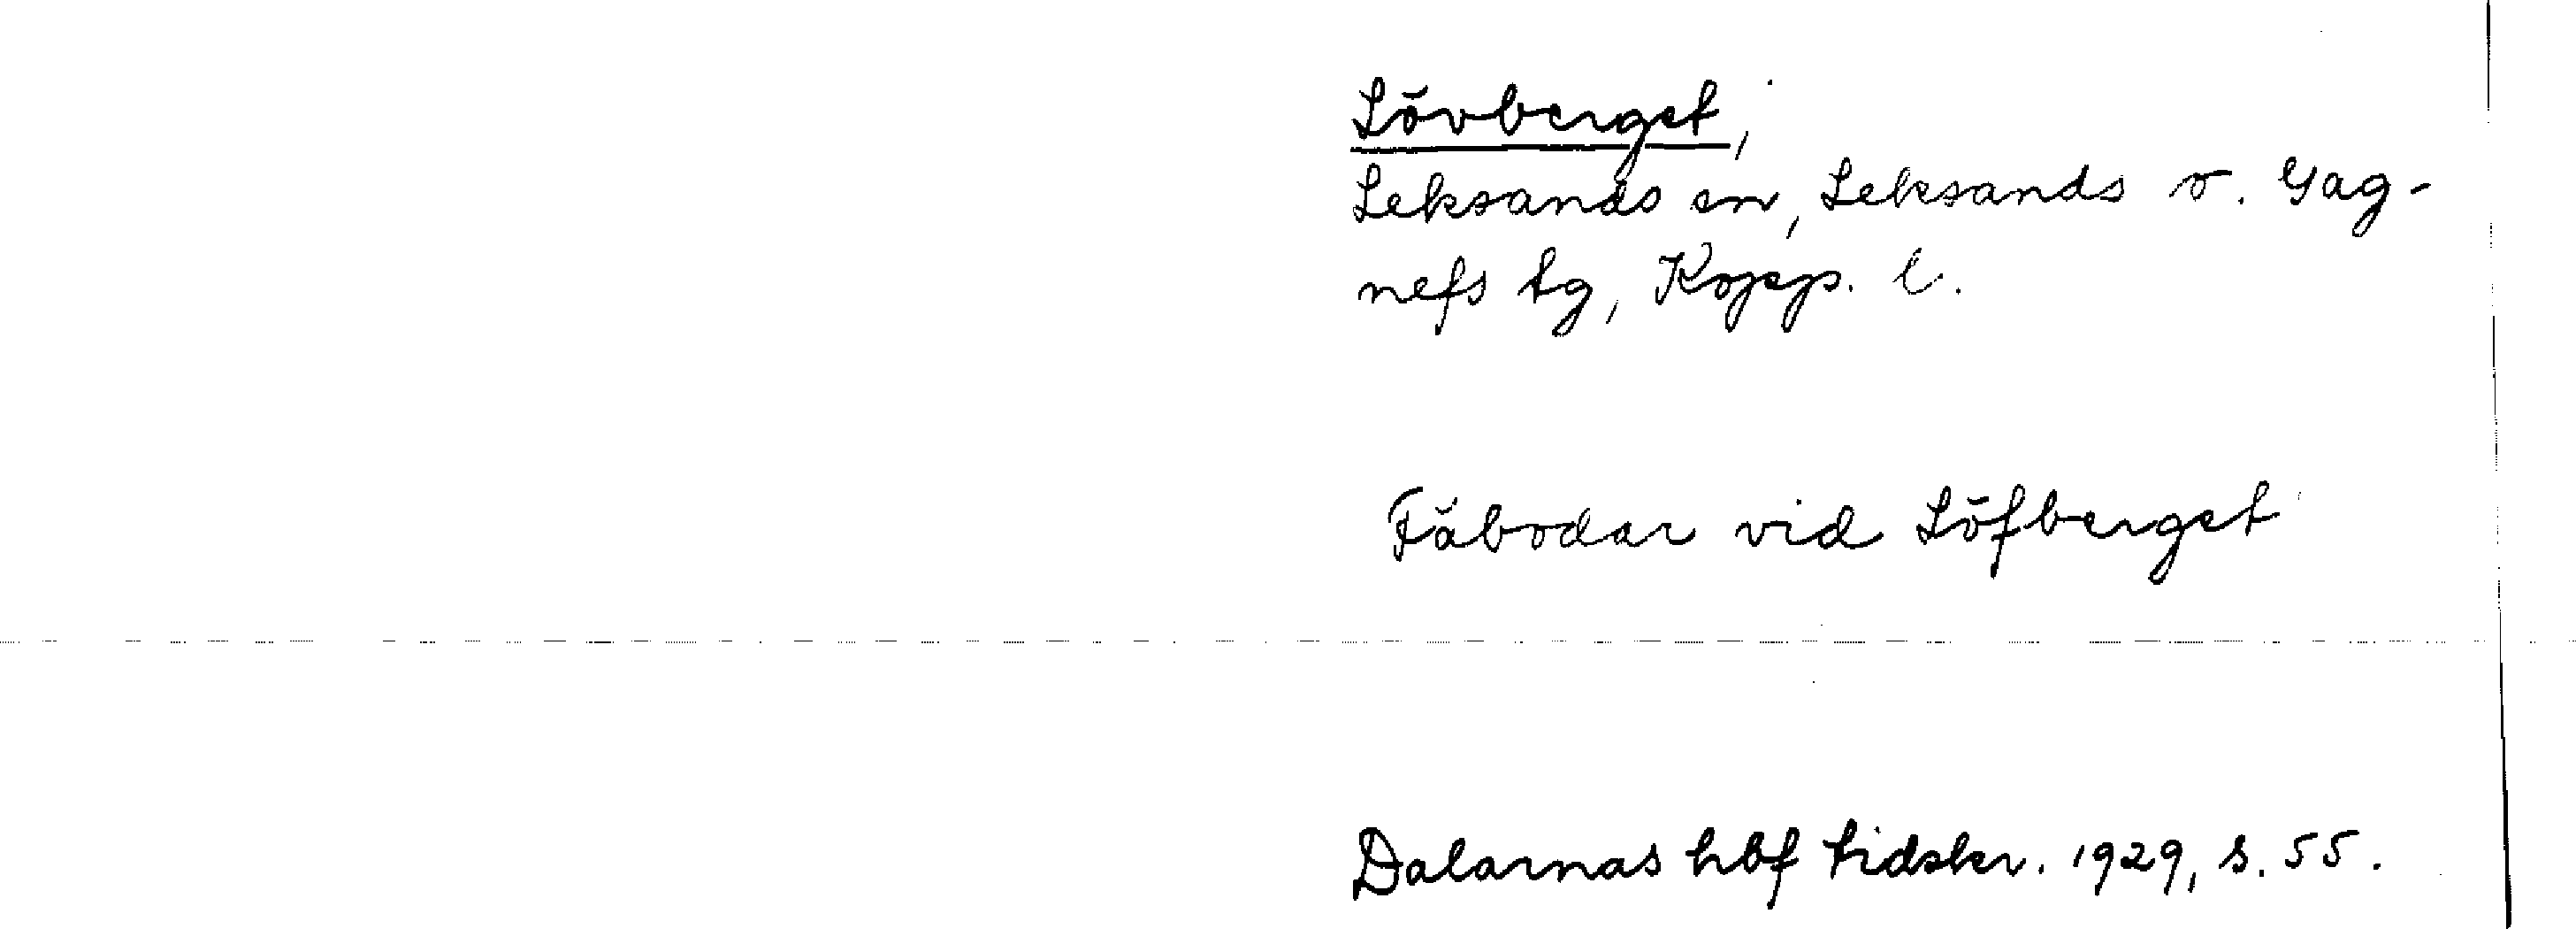 Lövberget,
Leksands sn, Leksands o. Gag-
nefs tg, Kopp. l.
Fäbodar vid Löfberget
Dalarnas hbf tidskr. 1929, s. 55.